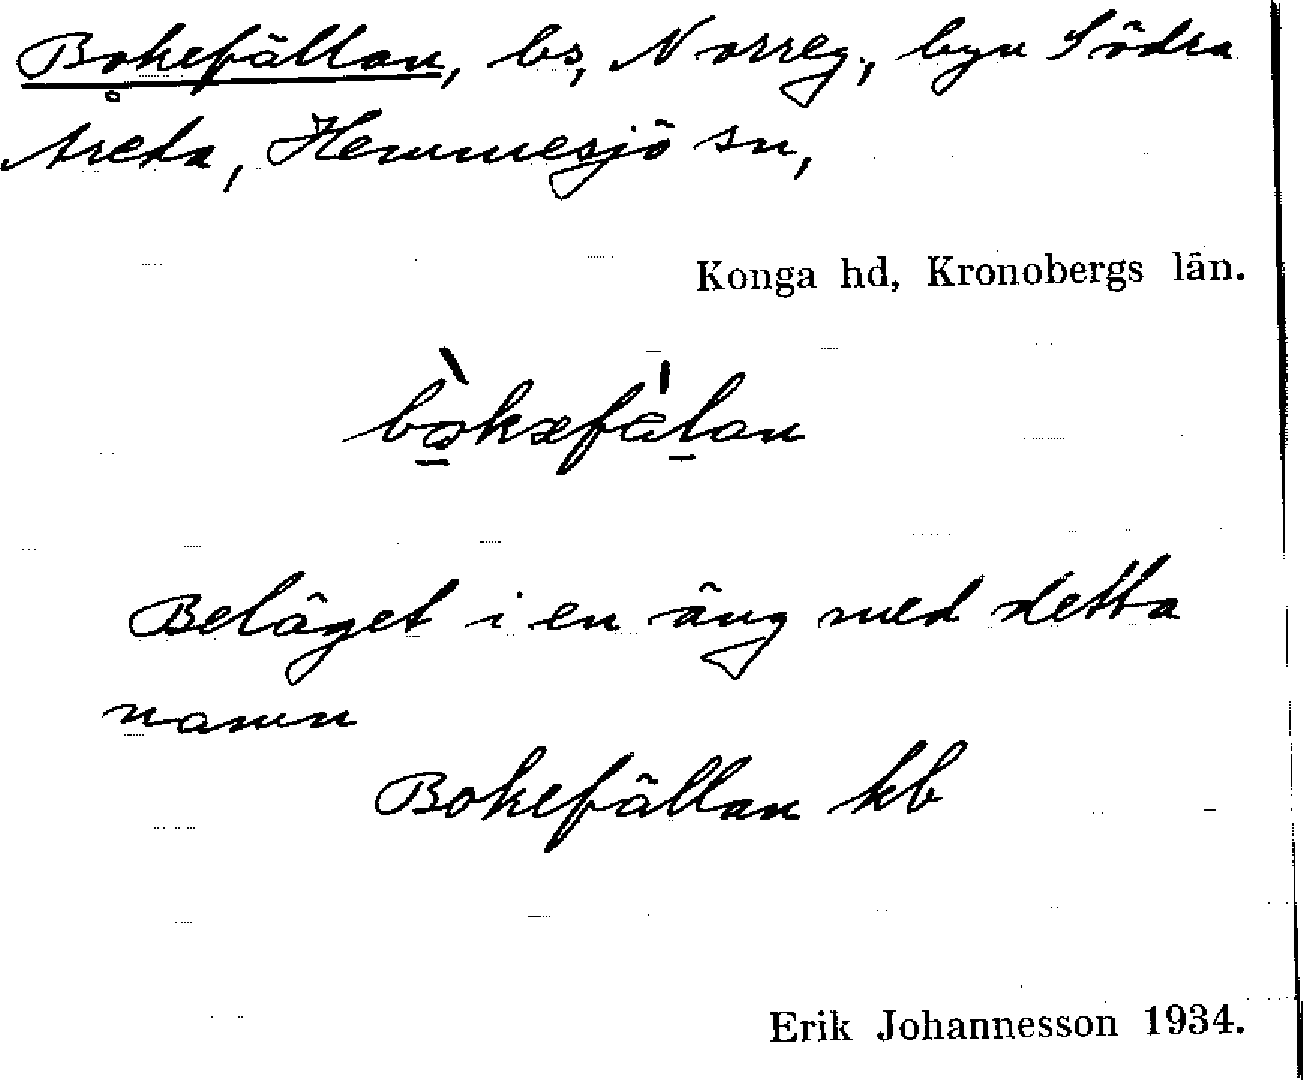 Bokefällan, bs, Norreg., byn Södra
Areda, Hemmesjö sn,
Konga hd, Kronobergs län.
bòkæfälan
Beläget i en äng med detta
namn
Bokefällan kb
Erik Johannesson 1934.